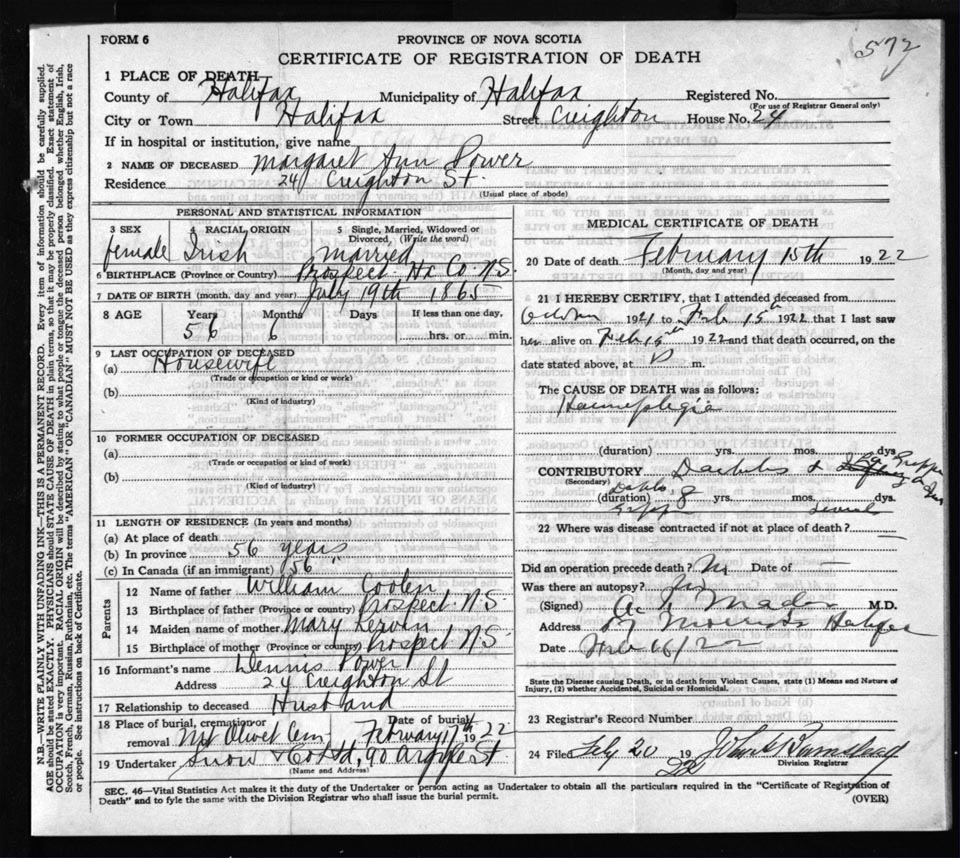 FORM 6
PROVINCE OF NOVA SCOTIA
572
CERTIFICATE OF REGISTRATION OF DEATH
1 PLACE OF DEATH
County of Halifax Municipality of Halifax Registered No.
(For use of Registrar General only)
City or Town Halifax Street Creighton House No. 24
If in hospital or institution, give name
2 NAME OF DECEASED Margaret Ann Power
Residence 24 Creighton St.
(Usual place of abode)
PERSONAL AND STATISTICAL INFORMATION
3 SEX 4 RACIAL ORIGIN 5 Single, Married, Widowed or Divorced, (Write the word)
female Irish Married
6 BIRTHPLACE (Province or Country) Prospect Hx Co N.S.
7 DATE OF BIRTH (month, day and year) July 19th 1865
8 AGE Years Months Days If less than one day,
56 6 hrs. or min.
9 LAST OCCUPATION OF DECEASED
(a) Housewife
(Trade or occupation or kind or work)
(b)
(Kind of industry)
10 FORMER OCCUPATION OF DECEASED
(a)
(Trade or occupation or kind of work)
(b)
(Kind of industry)
11 LENGTH OF RESIDENCE (In years and months)
(a) At place of death
(b) In province 56 years
(c) In Canada (if an immigrant) 56
Parents
12 Name of father William Coolen
13 Birthplace of father (Province or country) Prospect. N S
14 Maiden name of mother Mary Kervin
15 Birthplace of mother (Province or country) Prospect N S
16 Informant's name Dennis Power
Address 24 Creighton St
17 Relationship to deceased Husband
18 Place of burial, cremation or removal Mt Olivet Cem Date of burial February 17th 1922
19 Undertaker Snow & Co Ltd, 90 Argyle St
(Name and Address)
MEDICAL CERTIFICATE OF DEATH
20 Date of death February 15th 1922
(Month, day and year)
21 I HEREBY CERTIFY, that I attended deceased from
1921 to Feb 15th 1922 that I last saw
her alive on Feb 15th 1922 and that death occurred, on the
date stated above, at m.
The CAUSE OF DEATH was as follows:
Haemeplegia
(duration) yrs. mos. dys.
CONTRIBUTORY Diabetes & La Grippe
(Secondary)
(duration) Diabetes 8 yrs. mos. dys.
Grippe
22 Where was disease contracted if not at place of death?
Did an operation precede death? No Date of —
Was there an autopsy? No
(Signed) M.D.
Address Morris St Halifax
Date Feb 16/22
State the Disease causing Death, or in death from Violent Causes, state (1) Means and Nature of Injury, (2) whether Accidental, Suicidal or Homicidal.
23 Registrar's Record Number
24 Filed Feby 20 1922 John Barnstead
Division Registrar
SEC. 46—Vital Statistics Act makes it the duty of the Undertaker or person acting as Undertaker to obtain all the particulars required in the "Certificate of Registration of
Death" and to fyle the same with the Division Registrar who shall issue the burial permit.
(OVER)
N.B.—WRITE PLAINLY WITH UNFADING INK—THIS IS A PERMANENT RECORD. Every item of information should be carefully supplied.
AGE should be stated EXACTLY. PHYSICIANS should STATE CAUSE OF DEATH in plain terms, so that it may be properly classified. Exact statement of
OCCUPATION is very important. RACIAL ORIGIN will be described by stating to what people or tongue the deceased person belonged whether English, Irish,
Scotch, French, German, Russian, Ruthenian, etc. The terms "AMERICAN" OR "CANADIAN" MUST NOT BE USED as they express citizenship but not a race
or people. See instructions on back of Certificate.